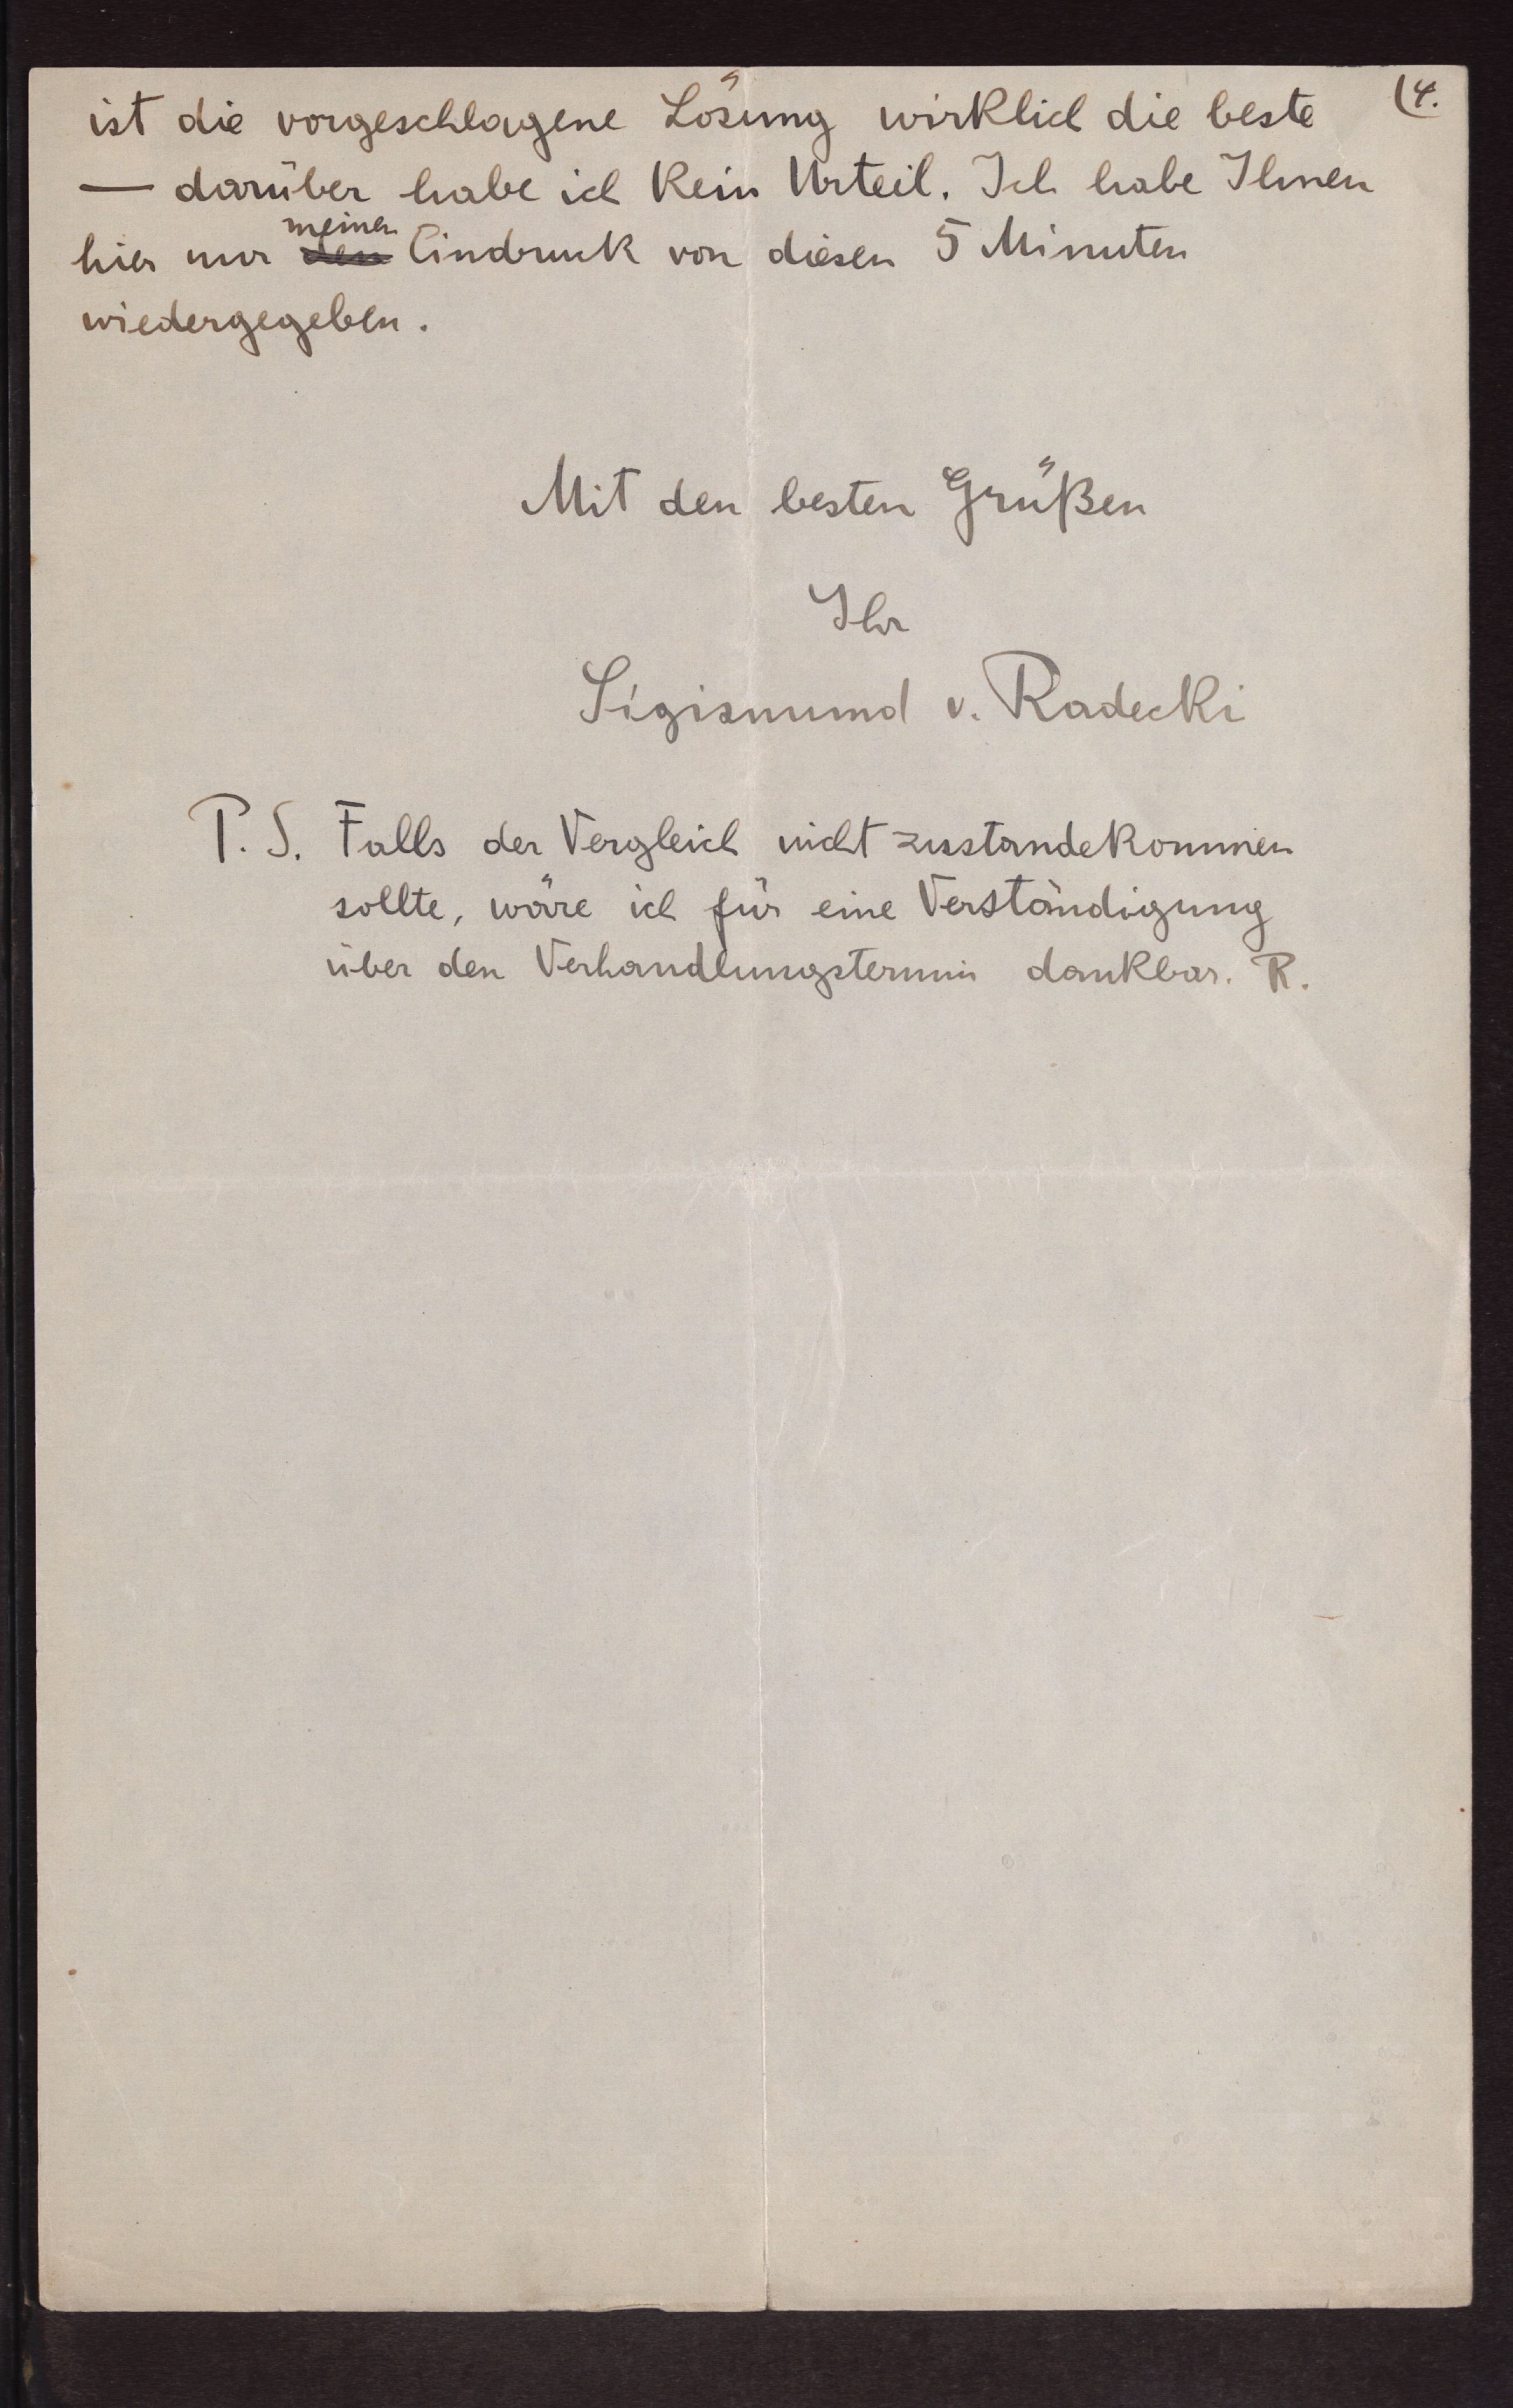 (4.
ist die vorgeschlagene Lösung wirklich die beste
— darüber habe ich kein Urteil. Ich habe Ihnen
meinen
hier nur den Eindruck von diesen 5 Minuten
wiedergegeben.
Mit den besten Grüßen
Ihr
Sigismund v. Radecki
P. S. Falls der Vergleich nicht zustandekommen
sollte, wäre ich für eine Verständigung
über den Verhandlungstermin dankbar. R.